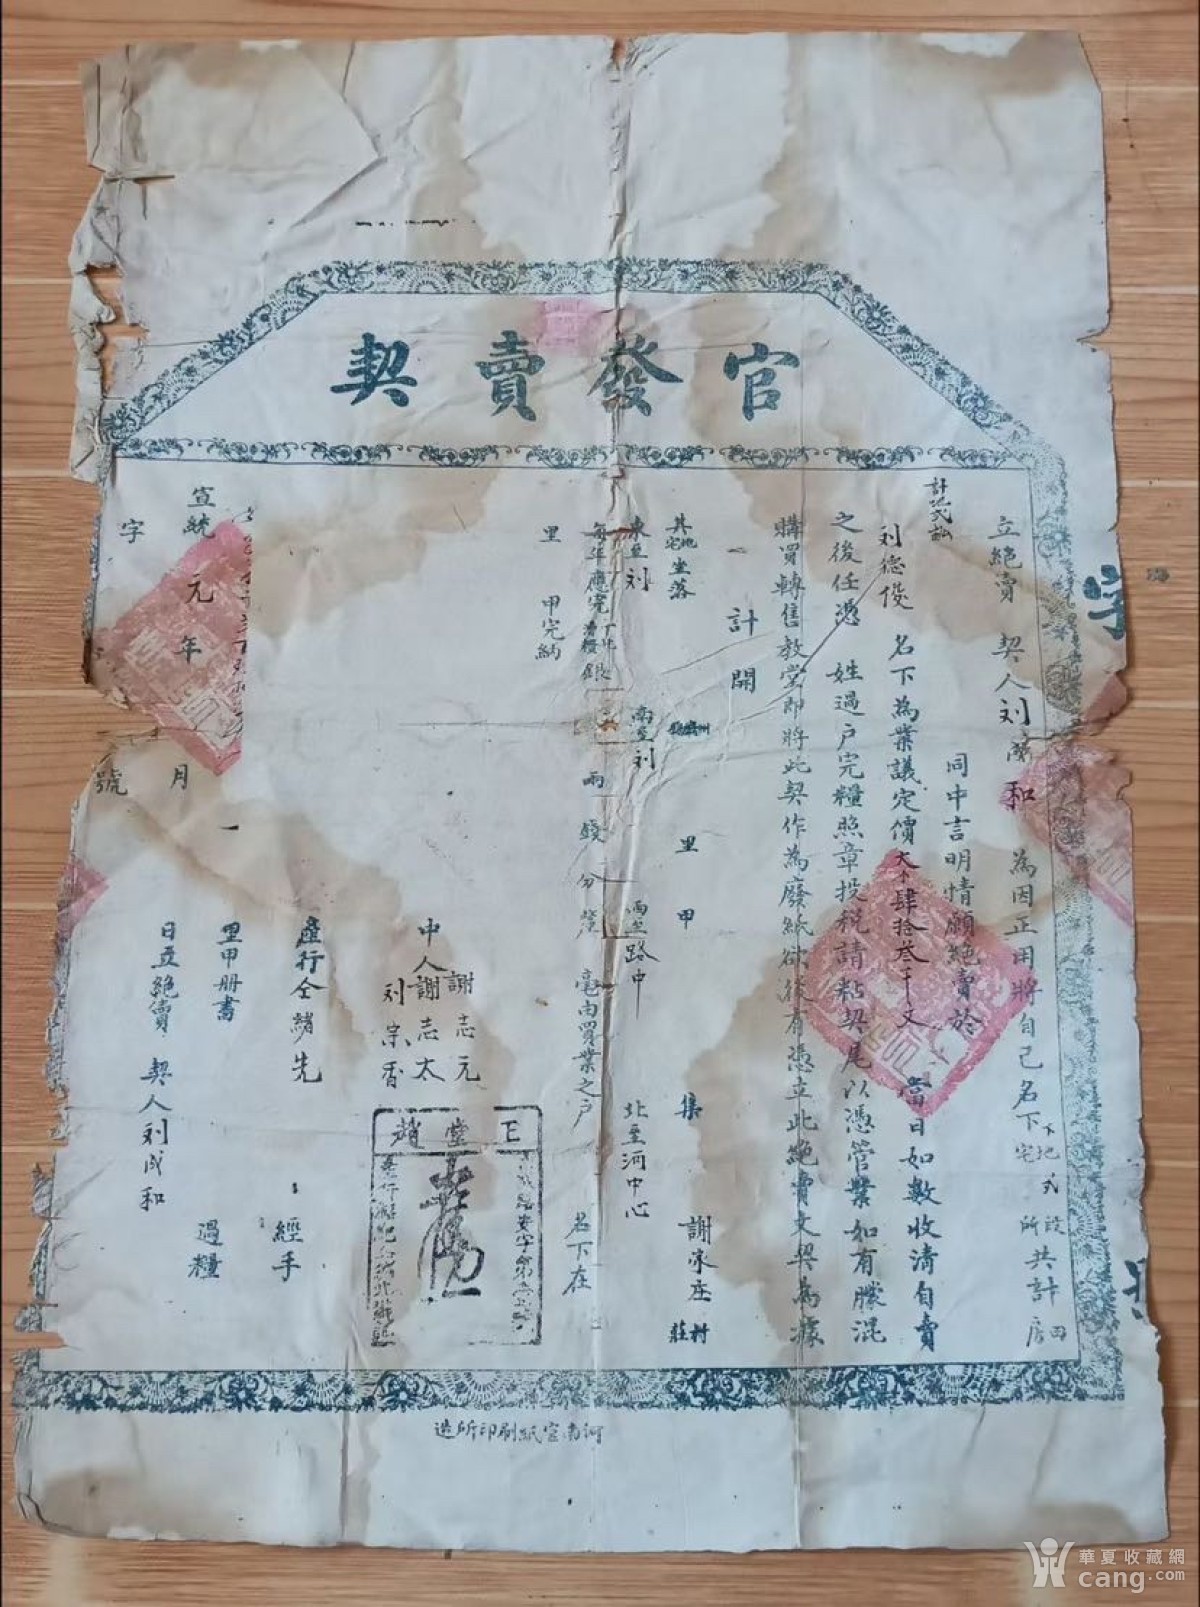 官發賣契
字
立絕賣 契人刘成和 為因正用將自己名下地 宅 所 段 共計 田 房
同中言明情願絕賣於
刘德俊 名下為業議定價大个肆拾叁千文 當日如數收清自賣
之後任憑 姓過户完糧照章投税請粘契尾以憑管業如有朦混
購買轉售教堂即將此契作為廢紙欲後有憑立此絕賣文契為據
計開
其地宅坐落 州縣 里 甲 集 謝家庄 村莊
東至刘 南至刘 西至路中 北至河中心
每年應完丁地漕糧銀 兩 錢 分 釐 毫南買業之户 名下在
里 甲完納
中人
謝志元
謝志太
刘宗香
王堂趙
產行仝緒先 經手
里甲册書 過糧
宣統元年 月 一 日立絕賣 契人刘成和
字 號
河南官紙刷印所造
華夏收藏網
cang.com